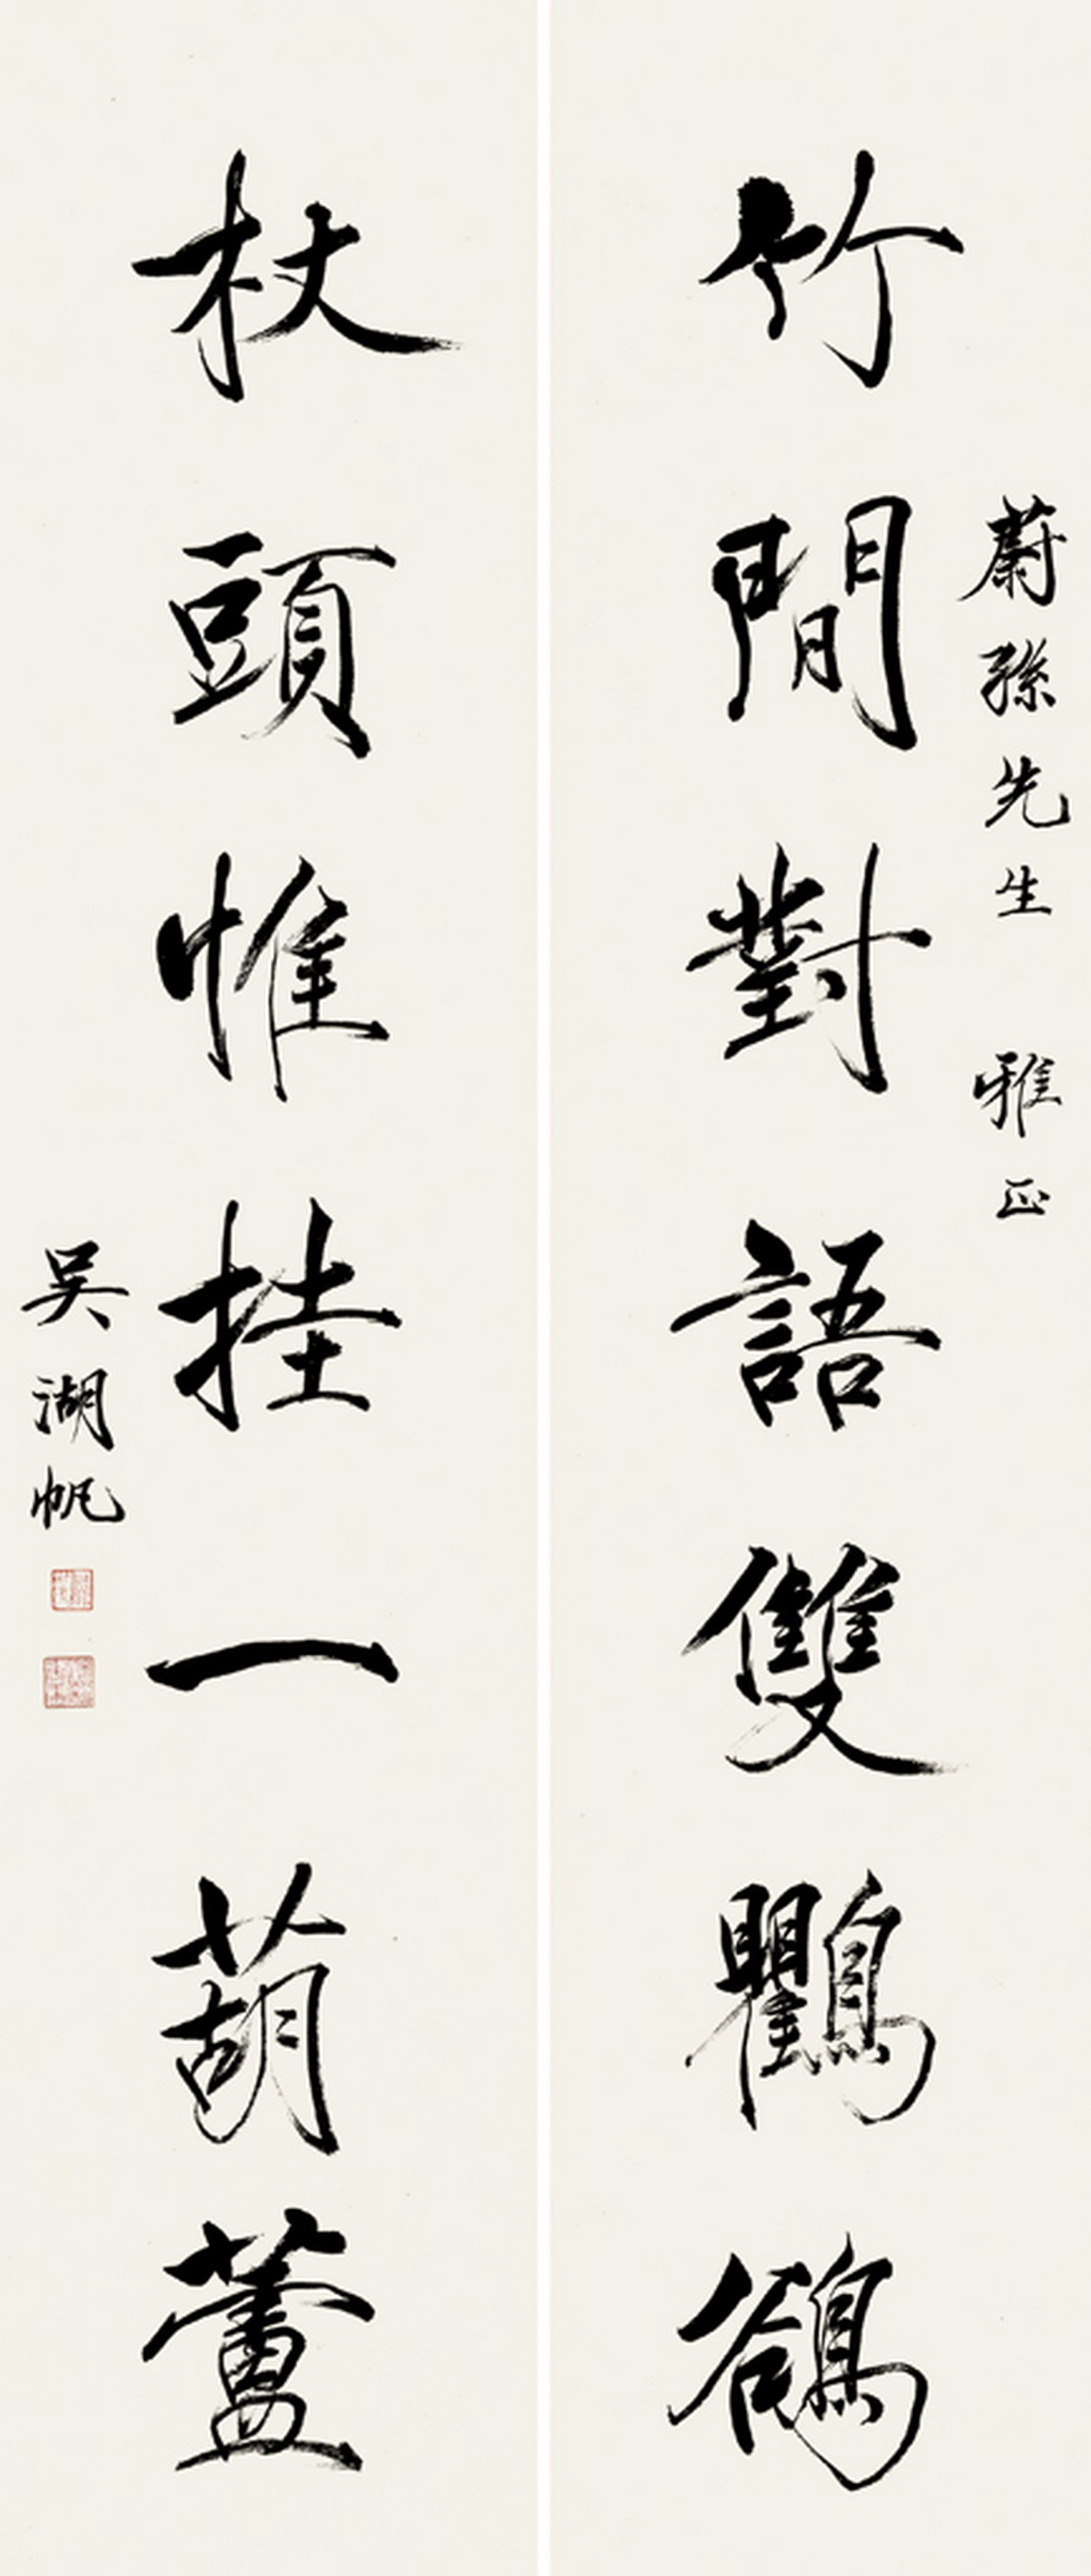 蔚孫先生 雅正
竹間對語雙鸜鵒
杖頭惟挂一葫蘆
吳湖帆